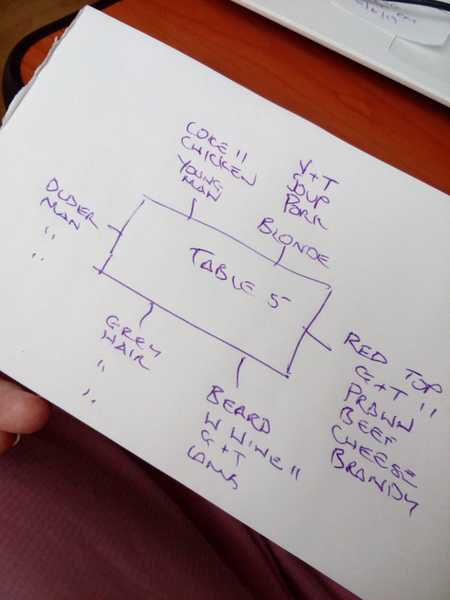 COKE "
CHICKEN
YOUNG
MAN
V+T
SOUP
PORK
BLONDE
OLDER
MAN
"
"
TABLE 5
GREY
HAIR
"
"
BEARD
W WINE "
G+T
LAMB
RED TOP
G+T "
PRAWN
BEEF
CHEESE
BRANDY